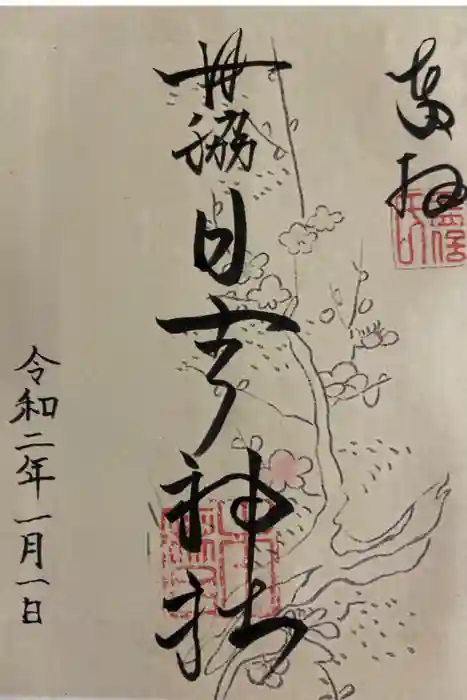 奉拝
日吉神社
令和二年一月一日